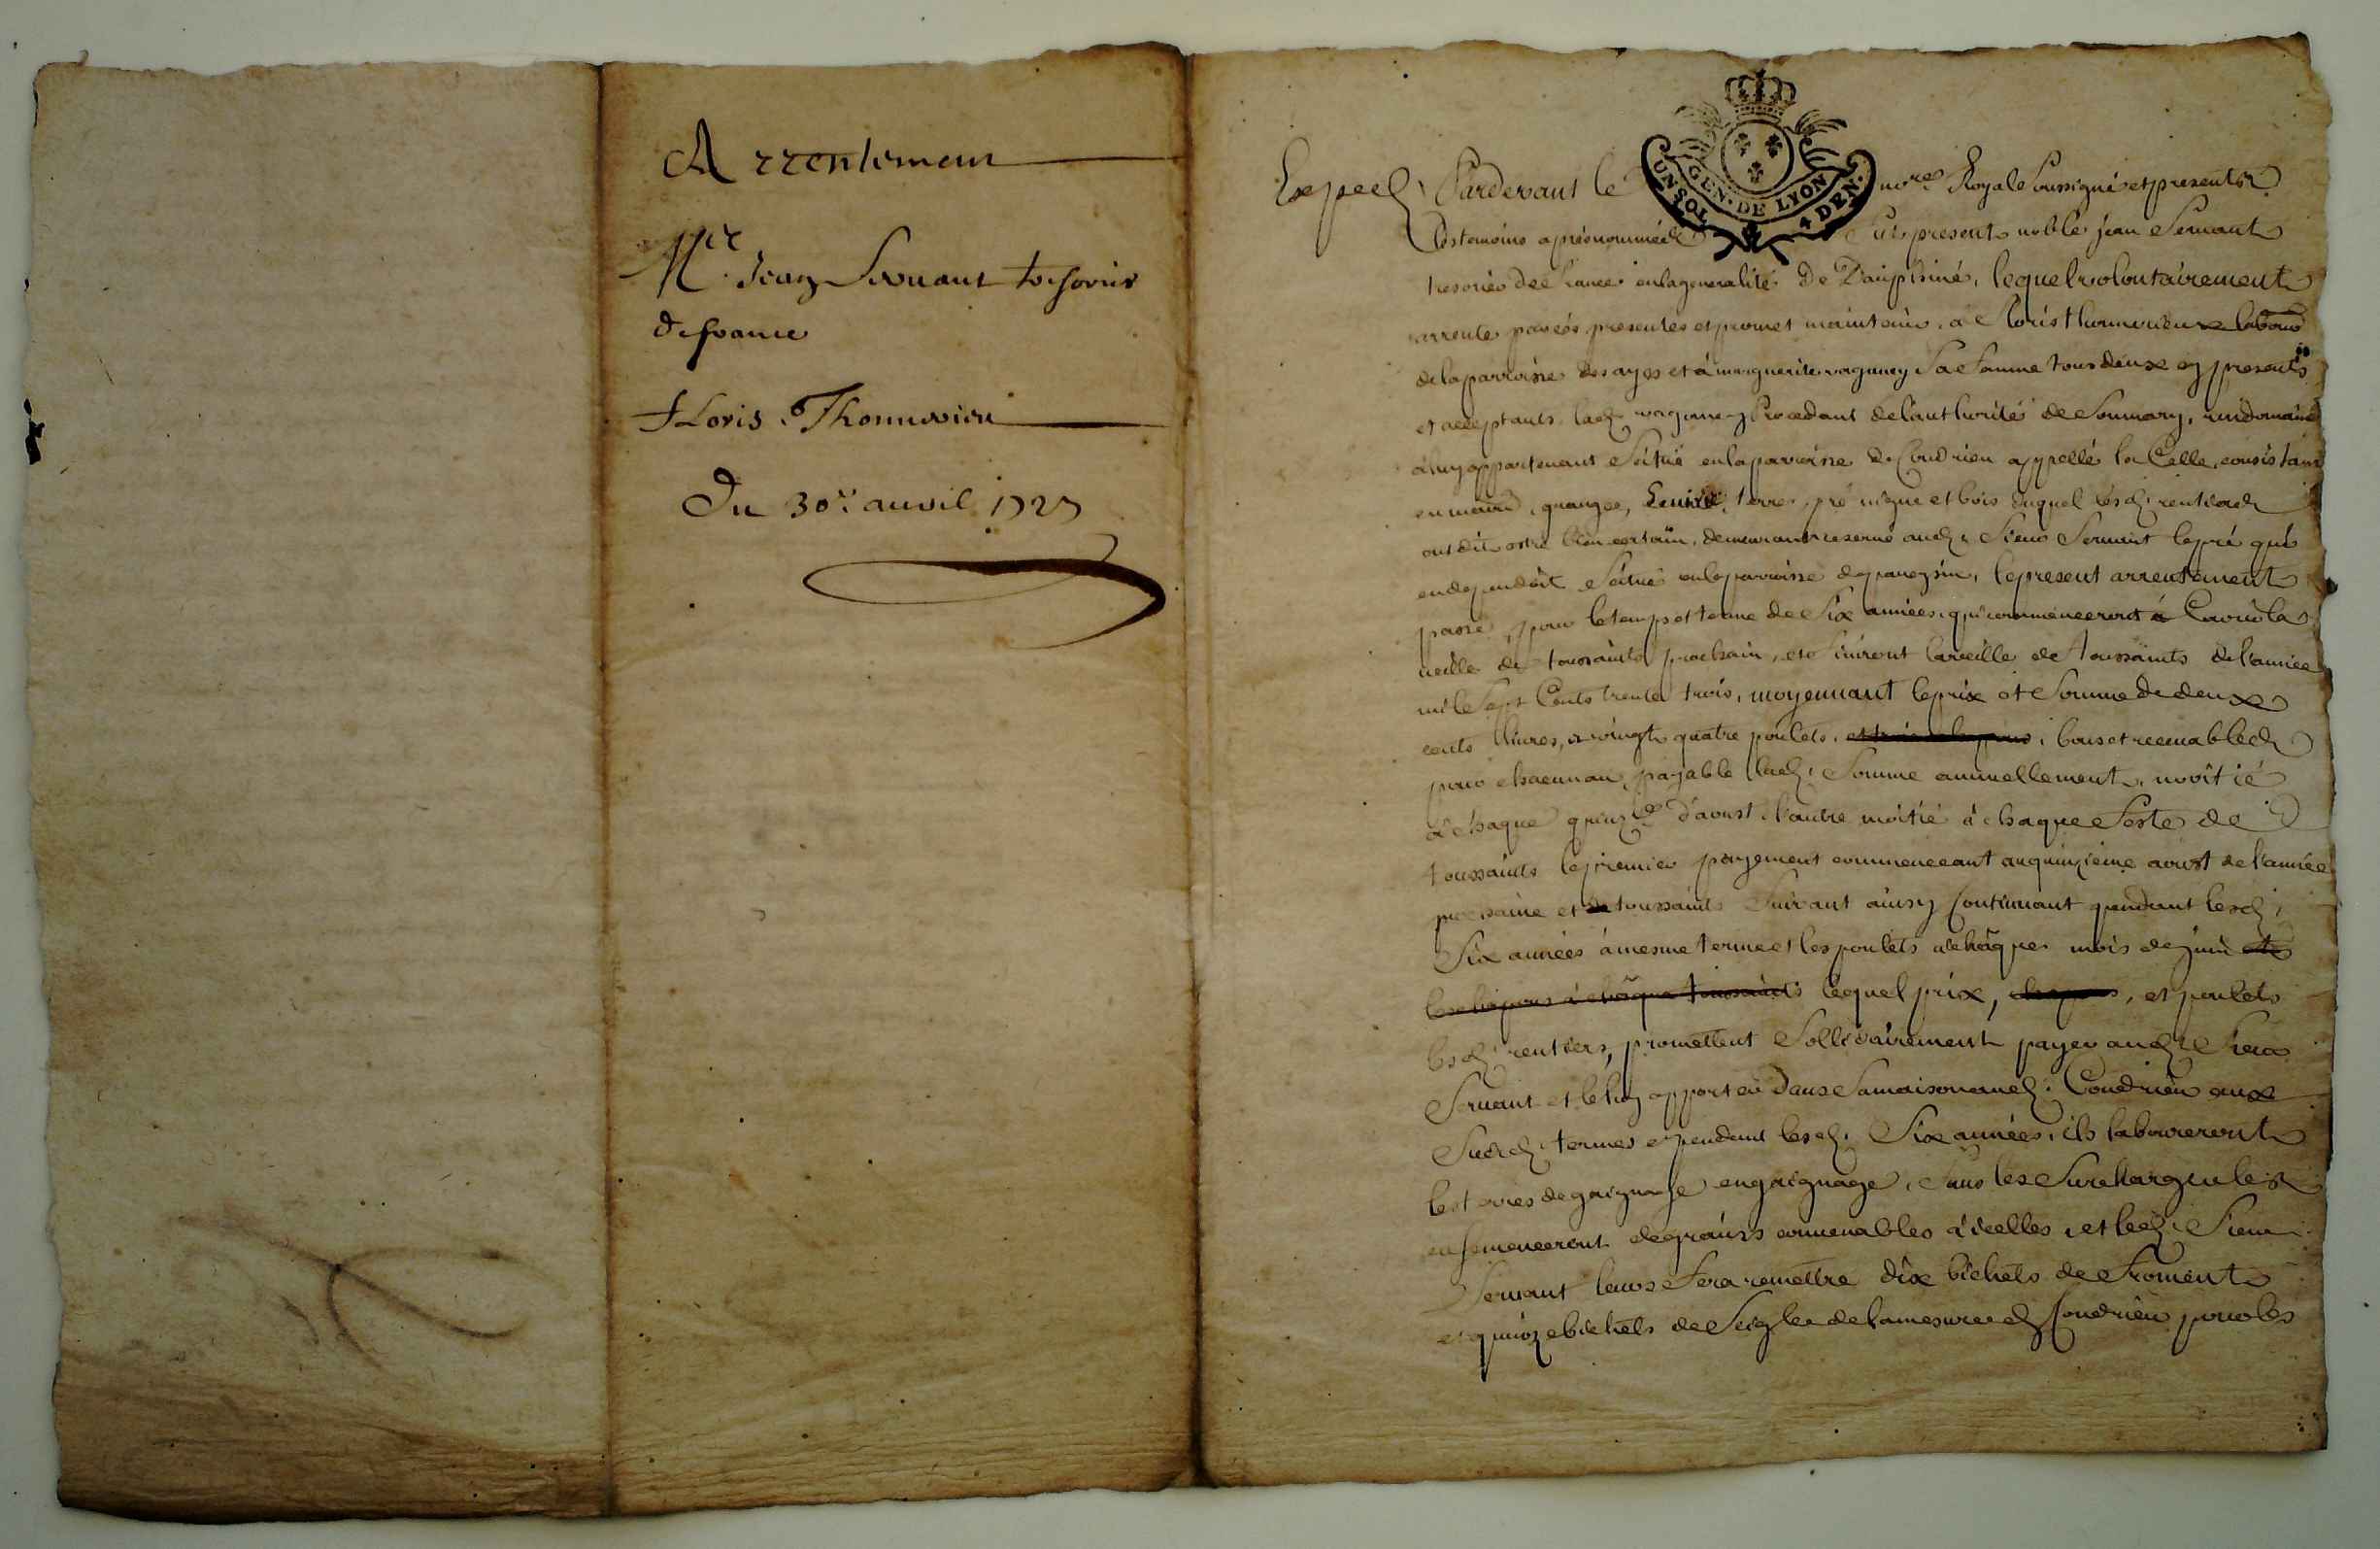 Arrentement
Mre Jean Servant tresorier
de france
Floris Thomeuieu
Du 30e auril 1727
UN SOL GEN. DE LYON 4 DEN.
Exped. Pardevant le nore Royal soussigné et presents
les temoins aprés nommés fut present noble jean Seruant
tresorier de france en la generalité De Dauphiné, lequel volontairement
arrente par ces presentes et promet maintenir, a floris laboure
de la parroisse des ayes et à marguerite vaganey sa femme tous deux icy presents
et acceptants lad. vaganey procedant de l'authorité de Son mary, un domaine
à luy appartenant Scitué en la parroisse de Condrieu appellé la Celle, consistant
en maison, granges, terre, pré vigne et bois duquel lesd. rentiers
ont dit estre bien certain, demeurant reservé aud. Sieur Seruant le pré qui
en dependoit Scitué en la parroisse de, le present arrentement
passé, pour le temps et terme de Six années, qui commenceront à la
veille de toussaints prochain, et finiront la veille de toussaints de l'année
mil Sept Cents trente trois, moyennant le prix et Somme de deux
cents liures, et vingt quatre poulets, bons et receuables
pour chacun an, payable lad. Somme annuellement, moitié
à chaque quinze d'aoust, l'autre moitié à chaque feste de
toussaints le premier payement commenceant au quinzieme aoust de l'année
prochaine et toussaints Suiuant ainsy Continuant pendant lesd.
Six années à mesme terme et les poulets à chaque mois de juin et
les chapons à chaque toussaints lequel prix, chapons, et poulets
lesd. rentiers, promettent Sollidairement payer aud. Sieur
Seruant et le luy apporter dans Sa maison aud. Condrieu aux
Susd. termes et pendant lesd. Six années, ils laboureront
les terres de gaignage en gaignage, Sans les Surcharger les
ensemenceront de grains conuenables à icelles, et led. Sieur
Seruant leurs fera remettre dix bichets de froment
et quinze bichets de Seigle de la mesure de Condrieu pour les